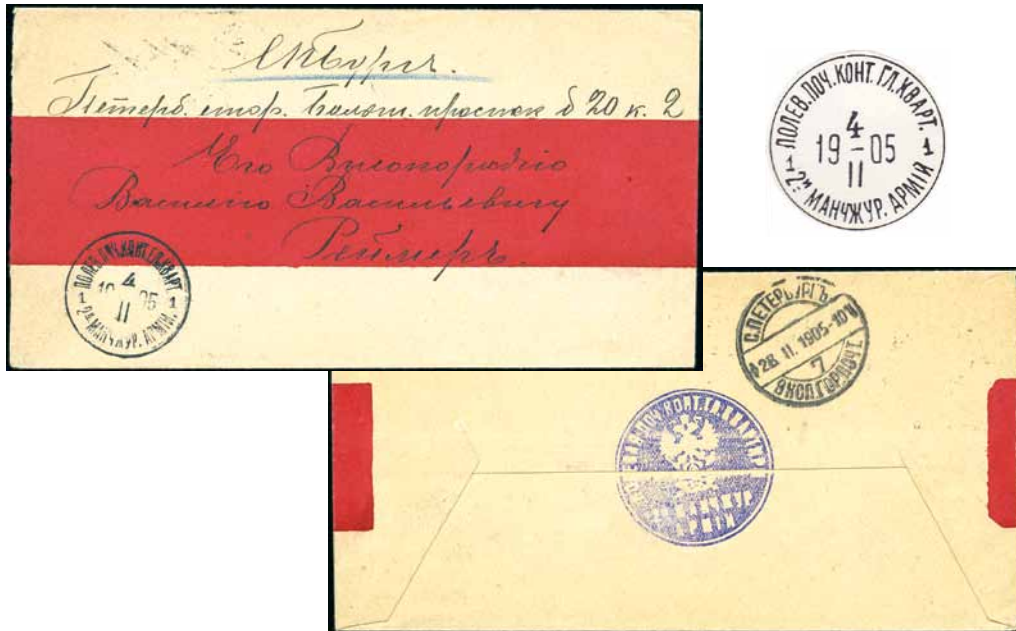 СПбургъ.
Петерб. стор. Больш. проспек д 20 к. 2
Его Высокородію
Василію Васильевичу
Реймеръ.
ПОЛЕВ. ПОЧ. КОНТ. ГЛ. КВАРТ.
4
19 05
II
1 2й МАНЧЖУР. АРМІИ. 1
ПОЛЕВ.ПОЧ.КОНТ.ГЛ.КВАРТ.
4
19 - 05
II
1 2й МАНЧЖУР. АРМІЙ 1
С.ПЕТЕРБУРГЪ
28.II.1905-10
7
ЭКСП.ГОР.ПОЧТ.
ПОЧ.КОНТ.ГЛ.КВАРТ